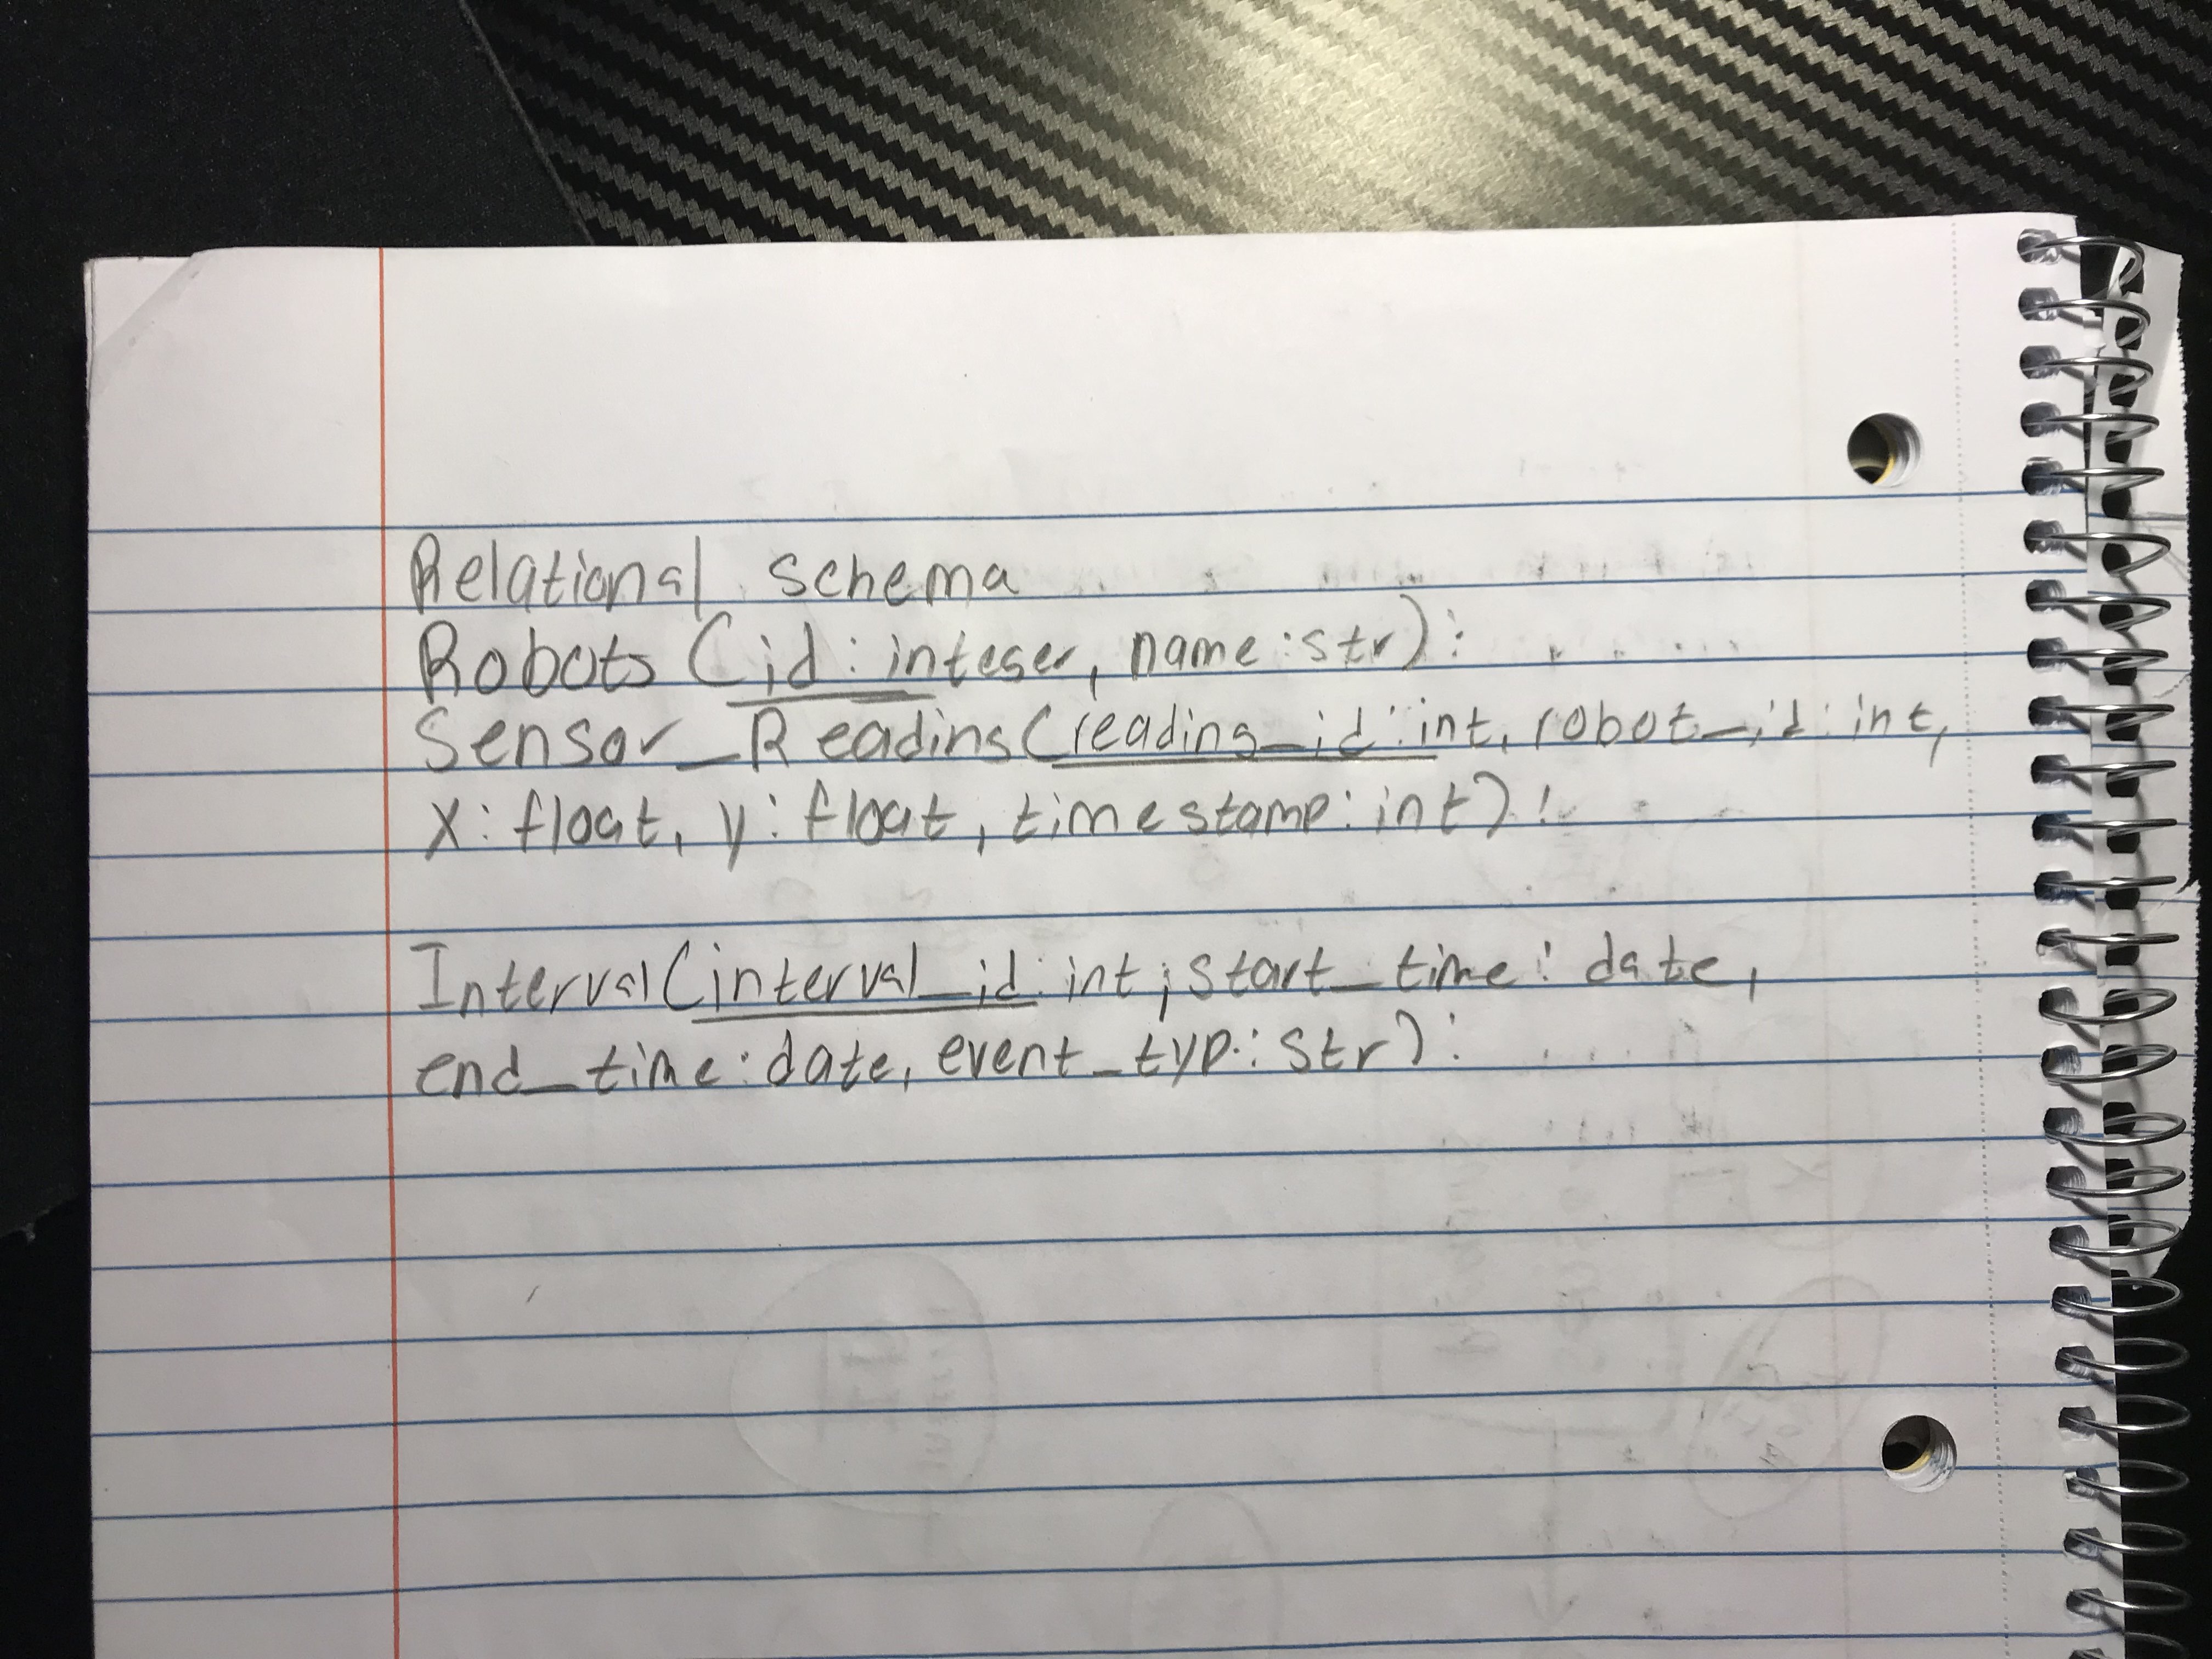 Relational schema
Robots (id: integer, name: str):
Sensor_Reading (reading_id: int, robot_id: int,
x: float, y: float, timestamp: int):
Interval (interval_id: int; start_time: date,
end_time: date, event_typ: str):